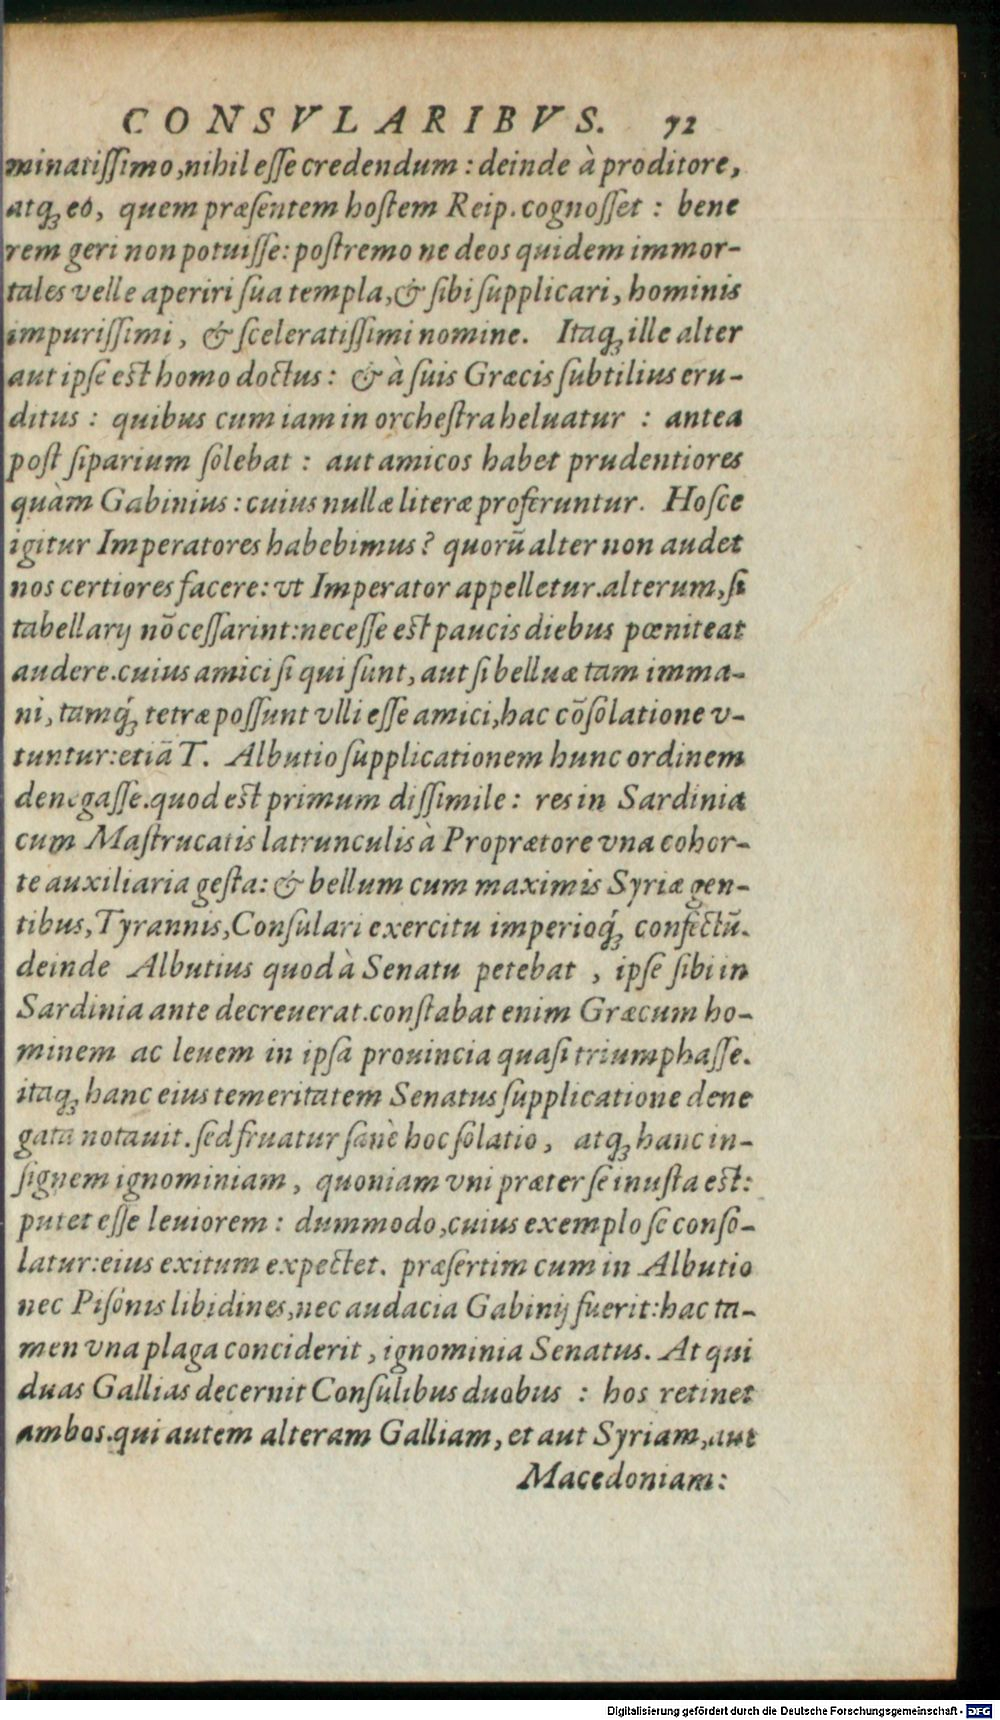 CONSVLARIBVS. 72
minatiſſimo,nihil eſſe credendum : deinde à proditore,
atq́ꝫ eo, quem præſentem hoſtem Reip. cognoſſet : bene
rem geri non potuiſſe: poſtremo ne deos quidem immor-
tales velle aperiri ſua templa,& ſibi ſupplicari, hominis
impuriſſimi, & ſceleratiſſimi nomine. Itaqꝫ ille alter
aut ipſe eſt homo doctus : & à ſuis Græcis ſubtilius eru-
ditus : quibus cum iam in orcheſtra heluatur : antea
poſt ſiparium ſolebat : aut amicos habet prudentiores
quàm Gabinius : cuius nullæ literæ proferuntur. Hoſce
igitur Imperatores habebimus? quorū alter non audet
nos certiores facere: vt Imperator appelletur.alterum,ſi
tabellarij nō ceſſarint:neceſſe eſt paucis diebus pœniteat
audere.cuius amici ſi qui ſunt, aut ſi belluæ tam imma-
ni, tamq́ꝫ tetræ poſſunt vlli eſſe amici,hac cōſolatione v-
tuntur:etiā T. Albutio ſupplicationem hunc ordinem
denegaſſe.quod eſt primum diſſimile : res in Sardinia
cum Maſtrucatis latrunculis à Proprætore vna cohor-
te auxiliaria geſta: & bellum cum maximis Syriæ gen-
tibus,Tyrannis,Conſulari exercitu imperioq́ꝫ confectū.
deinde Albutius quod à Senatu petebat , ipſe ſibi in
Sardinia ante decreuerat.conſtabat enim Græcum ho-
minem ac leuem in ipſa prouincia quaſi triumphaſſe.
itaqꝫ hanc eius temeritatem Senatus ſupplicatione dene
gata notauit. ſed fruatur ſanè hoc ſolatio, atqꝫ hanc in-
ſignem ignominiam, quoniam vni præter ſe inuſta eſt:
putet eſſe leuiorem : dummodo,cuius exemplo ſe conſo-
latur:eius exitum expectet. præſertim cum in Albutio
nec Piſonis libidines,nec audacia Gabinij fuerit:hac ta-
men vna plaga conciderit , ignominia Senatus. At qui
duas Gallias decernit Conſulibus duobus : hos retinet
ambos.qui autem alteram Galliam, et aut Syriam,aut
Macedoniam:
Digitalisierung gefördert durch die Deutsche Forschungsgemeinschaft - DFG